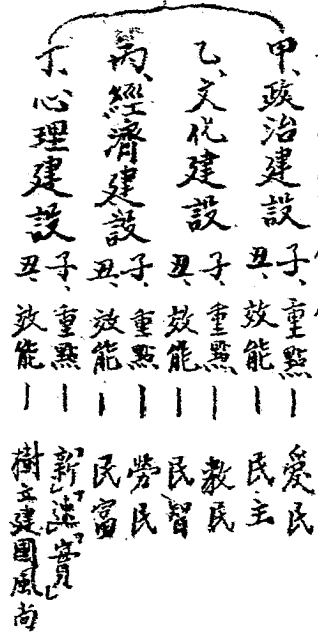 甲、政治建設
子、重點——愛民
丑、效能——民主
乙、文化建設
子、重點——教民
丑、效能——民智
丙、經濟建設
子、重點——勞民
丑、效能——民富
丁、心理建設
子、重點——「新」「速」「實」
丑、效能——樹立建國風尚